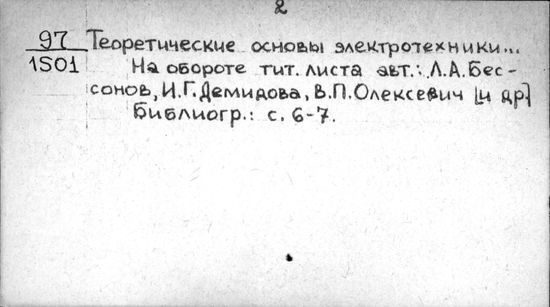 2
97 Теоретические основы электротехники...
1501 На обороте тит. листа авт.: Л.А.Бес-
сонов, И.Г.Демидова, В.П.Олексевич [и др.]
Библиогр.: с. 6-7.